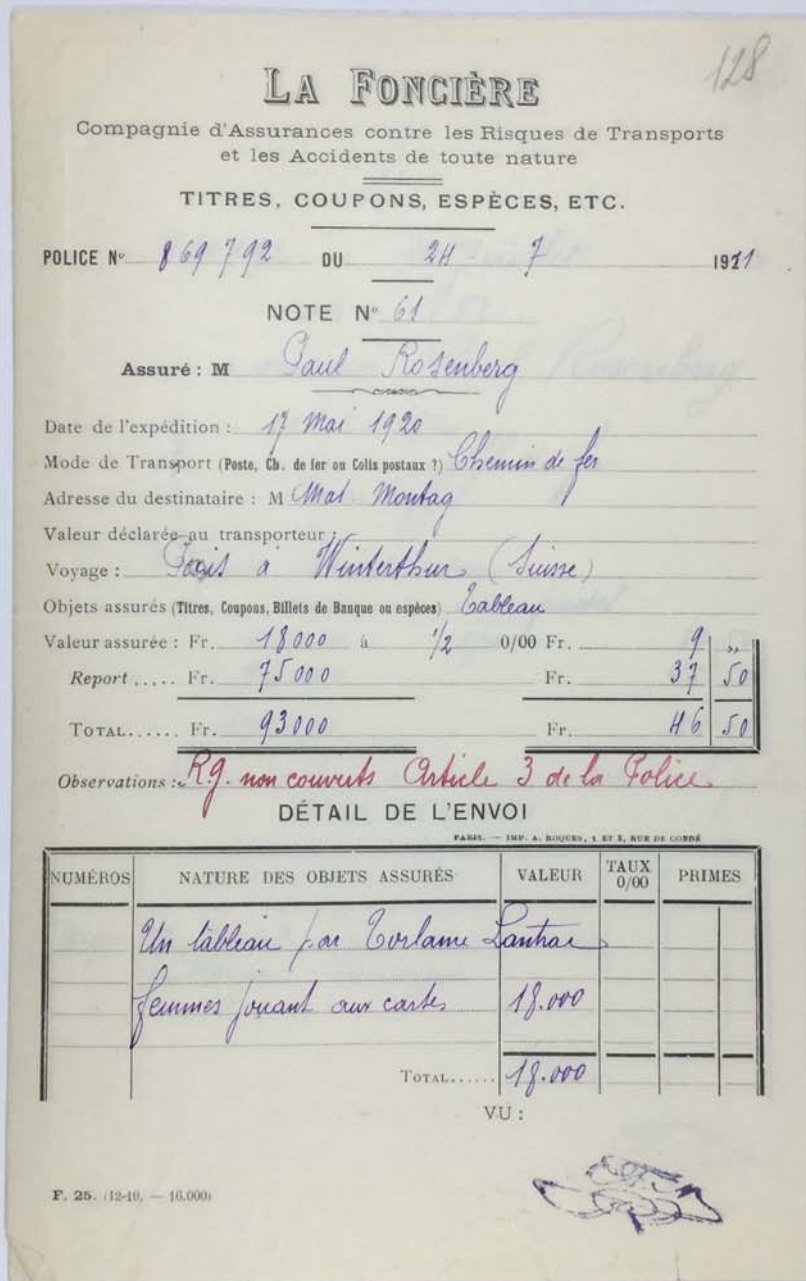 128
LA FONCIÈRE
Compagnie d'Assurances contre les Risques de Transports
et les Accidents de toute nature
TITRES, COUPONS, ESPÈCES, ETC.
POLICE No 869792 DU 24 7 1911
NOTE No 61
Assuré : M Paul Rosenberg
Date de l'expédition : 17 Mai 1920
Mode de Transport (Poste, Ch. de fer ou Colis postaux ?) Chemin de fer
Adresse du destinataire : M Montag
Valeur déclarée au transporteur :
Voyage : Paris à Winterthur (Suisse)
Objets assurés (Titres, Coupons, Billets de Banque ou espèces) Tableau
Valeur assurée : Fr. 18000 à 1/2 0/00 Fr. 9 "
Report ..... Fr. 75000 Fr. 37 50
TOTAL...... Fr. 93000 Fr. 46 50
Observations : R.g. non couverts Article 3 de la Police
DÉTAIL DE L'ENVOI
PARIS. — IMP. A. ROQUES, 1 ET 3, RUE DE CONDÉ
NUMÉROS NATURE DES OBJETS ASSURÉS VALEUR TAUX 0/00 PRIMES
Un tableau par
femmes jouant aux cartes 18.000
TOTAL...... 18.000
VU :
F. 25. (12-19. — 16.000)